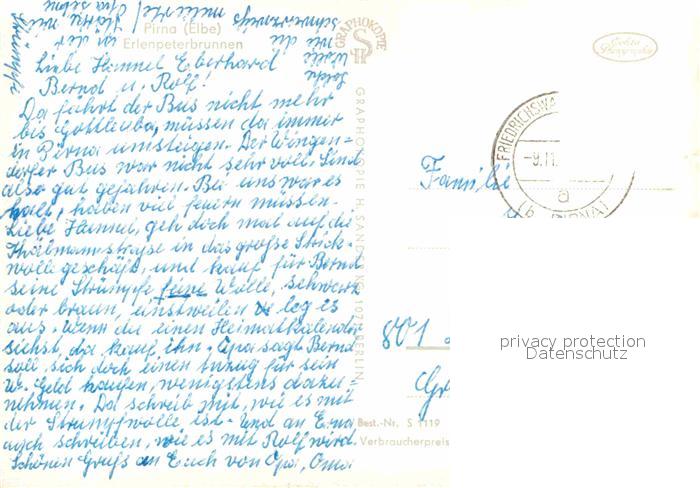 Pirna (Elbe)
Erlenpeterbrunnen
Liebe Hannel Eberhard
Bernd u. Rolf!
Da fährt der Bus nicht mehr
bis Gottleuba, müssen da immer
in Pirna umsteigen. Der
Bus war nicht sehr voll. Sind
also gut gefahren. Bei uns war es
kalt, haben viel feuern müssen.
Liebe Hannel, geh doch mal auf die
Thälmannstraße in das große Strick-
wollgeschäft, und kauf für Bernd
seine Strümpfe feine Wolle, schwarz
oder braun, einstweilen leg es
aus. Wenn du einen Heimatkalender
siehst, da kauf ihn. Opa sagt Bernd
soll sich doch einen Anzug für sein
W. Geld kaufen, wenigstens dazu
nehmen. Da schreib mit, wie es mit
der Strumpfwolle ist. Und an Erna
auch schreiben, wie es mit Rolf wird
Schönen Gruß an Euch von Opa, Oma
Solche
Wolle
wie du
in der
Strümpfe
GRAPHOKOPIE
GRAPHOKOPIE H. SANDER
107 BERLIN
Echte
Photographie
FRIEDRICHSWA
-9.11.
a
(b. PIRNA)
Familie
801
Best.-Nr. S 1119
Verbraucherpreis
privacy protection
Datenschutz